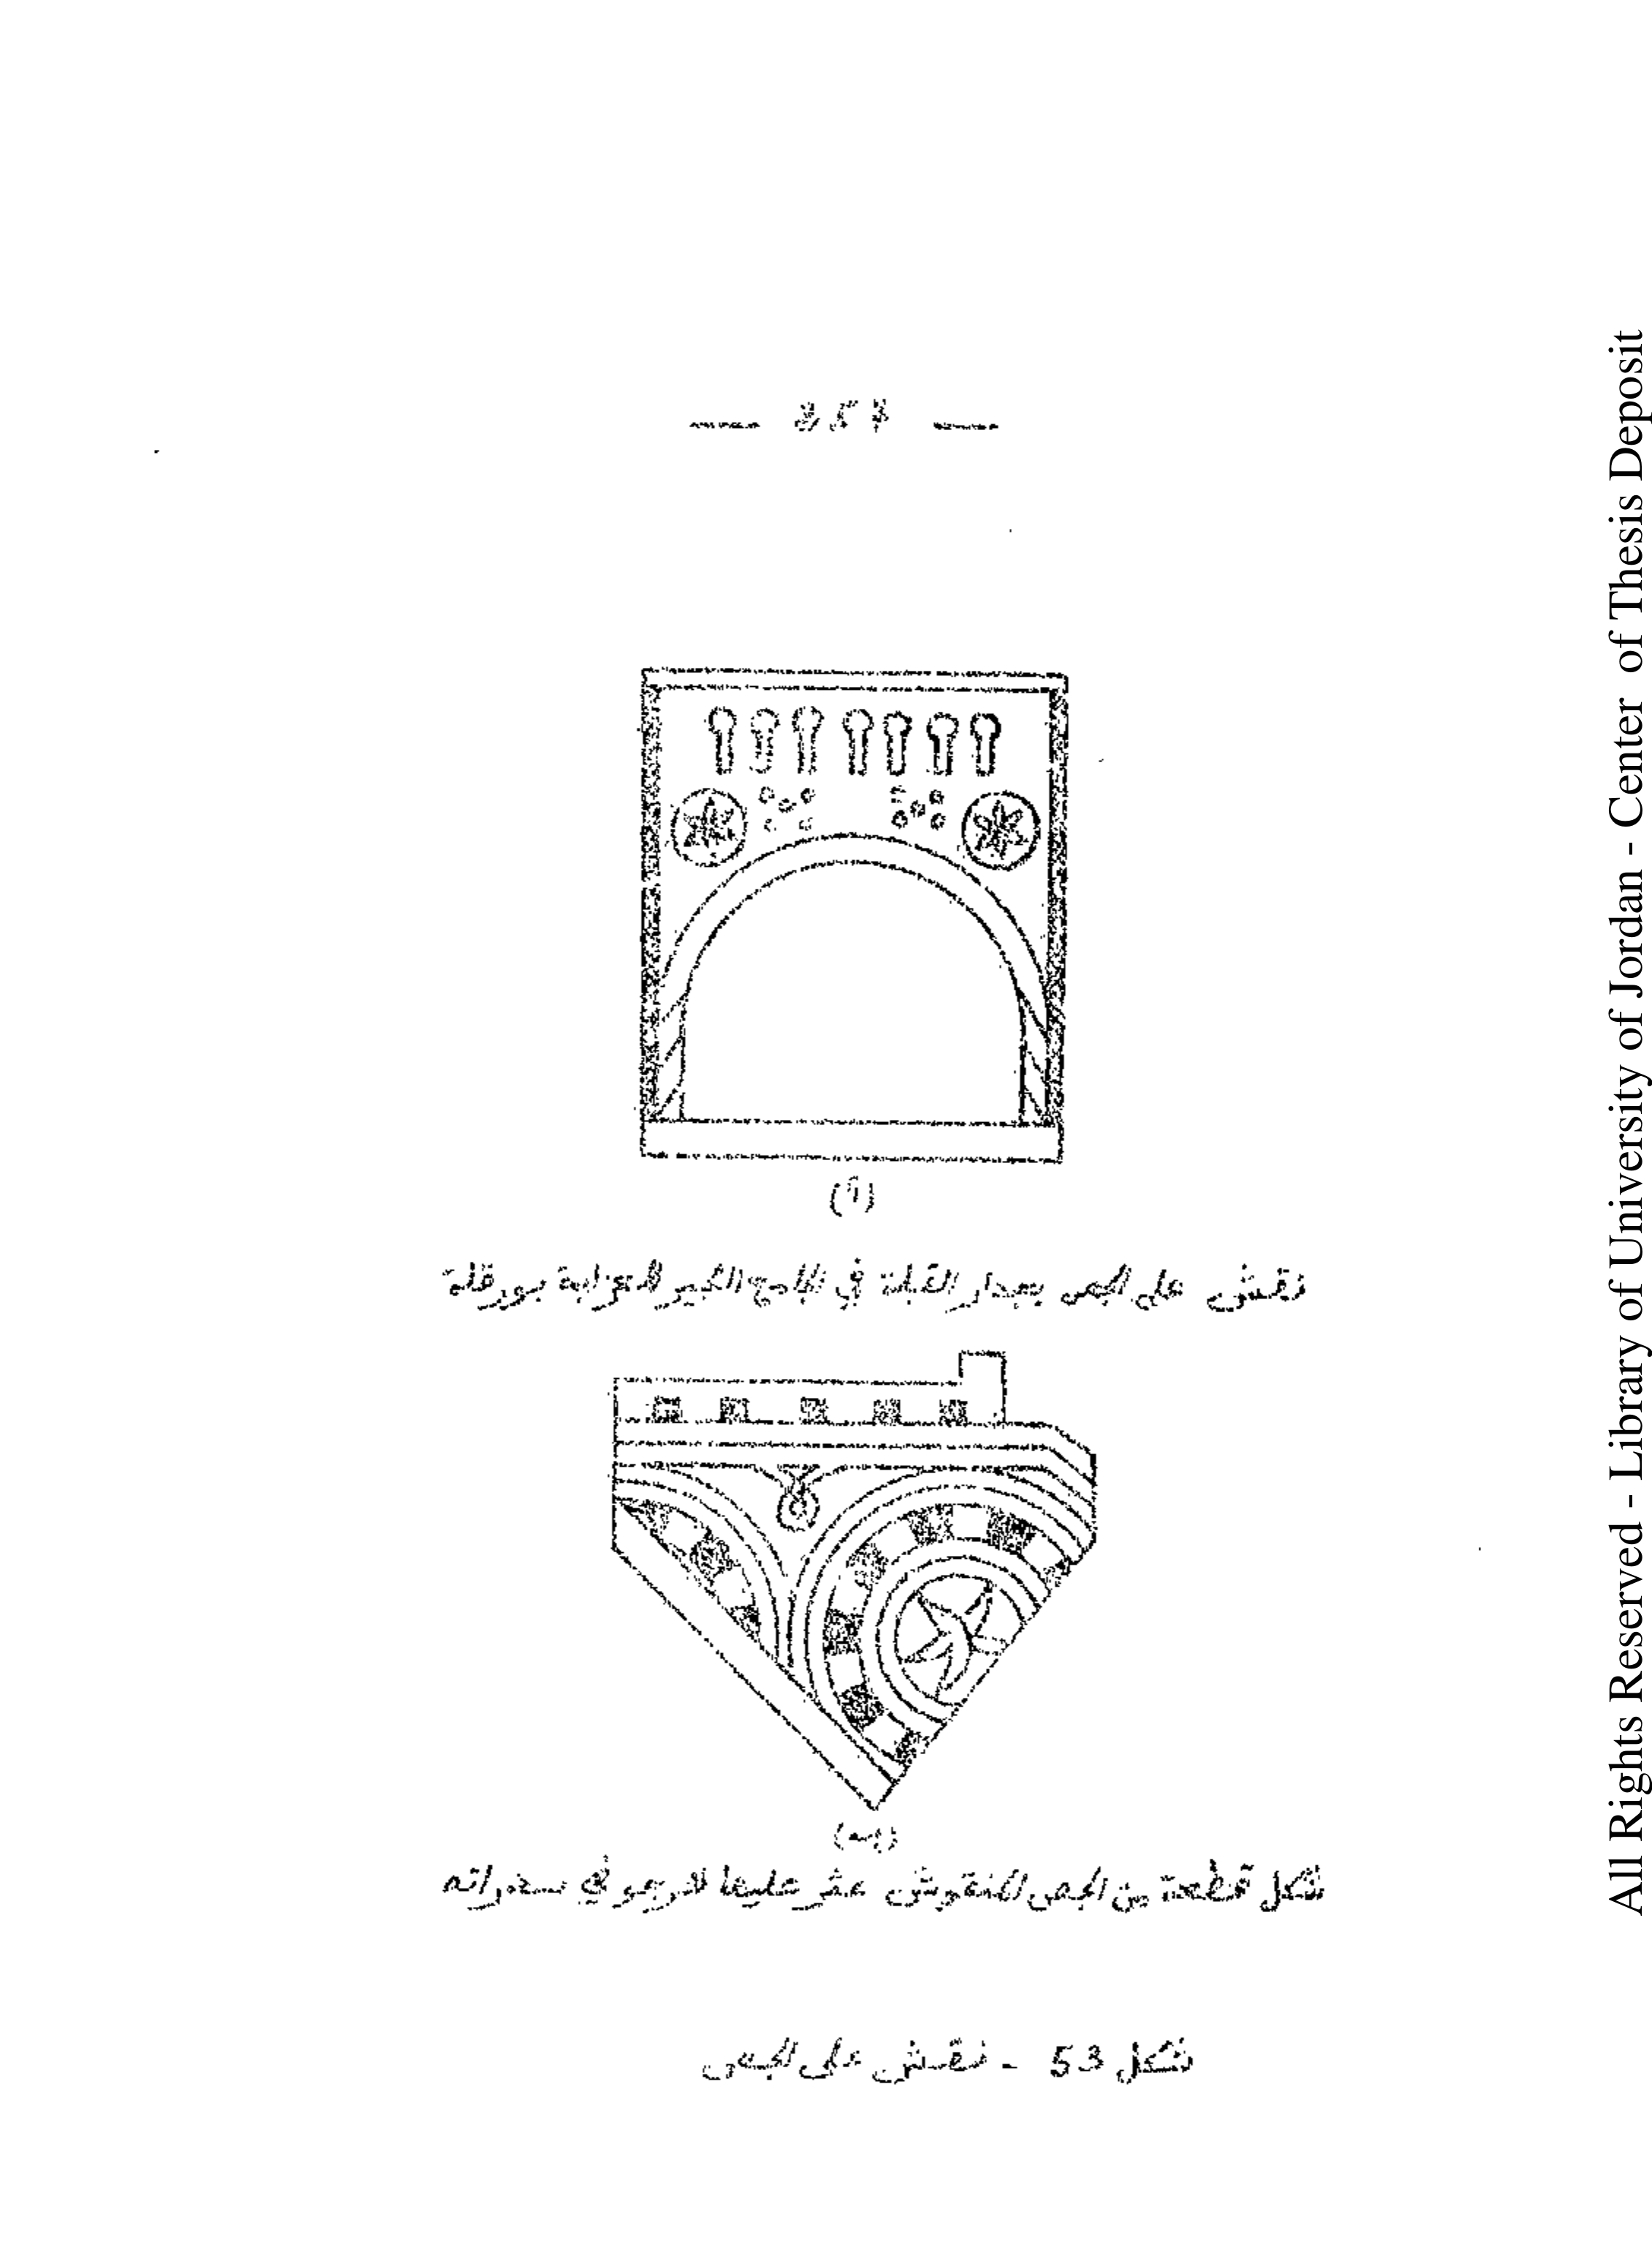 (أ)
نقش على الجص بجدار القبلة في الجامع الكبير للعزابة بورقلة
(ب)
شكل قطعة من الجص المنقوش عثر عليها لارجو في سدراته
شكل 53 - نقش على الجص
All Rights Reserved - Library of University of Jordan - Center of Thesis Deposit